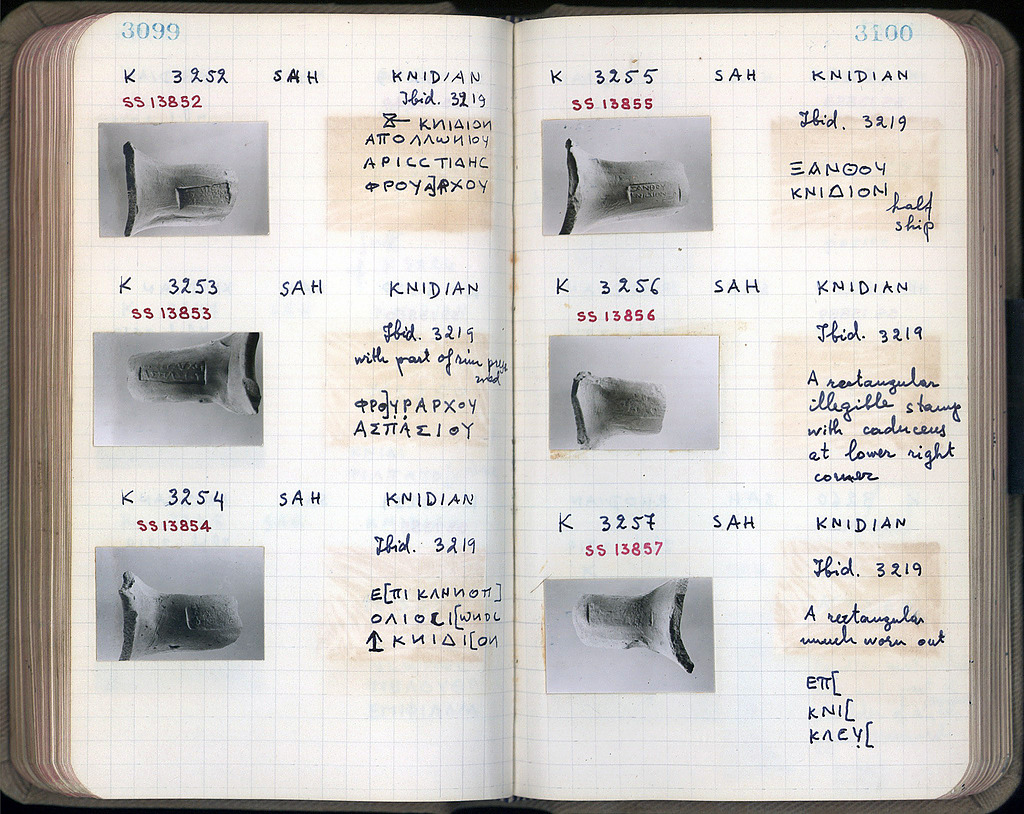 3099
K 3252 SAH KNIDIAN
SS 13852
Ibid. 3219
ΚΝΙΔΙΟΝ
ΑΠΟΛΛΩΝΙΟΥ
ΑΡΙϹϹΤΙΔΗϹ
ΦΡΟΥΑ]ΡΧΟΥ
K 3253 SAH KNIDIAN
SS 13853
Ibid. 3219
with part of rim pres
ΦΡΟ]ΥΡΑΡΧΟΥ
ΑΣΠΑΣΙΟΥ
K 3254 SAH KNIDIAN
SS 13854
Ibid. 3219
Ε[ΠΙ ΚΛΗΝΟΠ]
ΟΛΙΟϹ Ι[ΩΝΟϹ
↑ ΚΝΙΔΙ[ΟΝ
3100
K 3255 SAH KNIDIAN
SS 13855
Ibid. 3219
ΞΑΝΘΟΥ
ΚΝΙΔΙΟΝ
half
ship
K 3256 SAH KNIDIAN
SS 13856
Ibid. 3219
A rectangular
illegible stamp
with caduceus
at lower right
corner
K 3257 SAH KNIDIAN
SS 13857
Ibid. 3219
A rectangular
much worn out
ΕΠ[
ΚΝΙ[
ΚΛΕΥ̣[